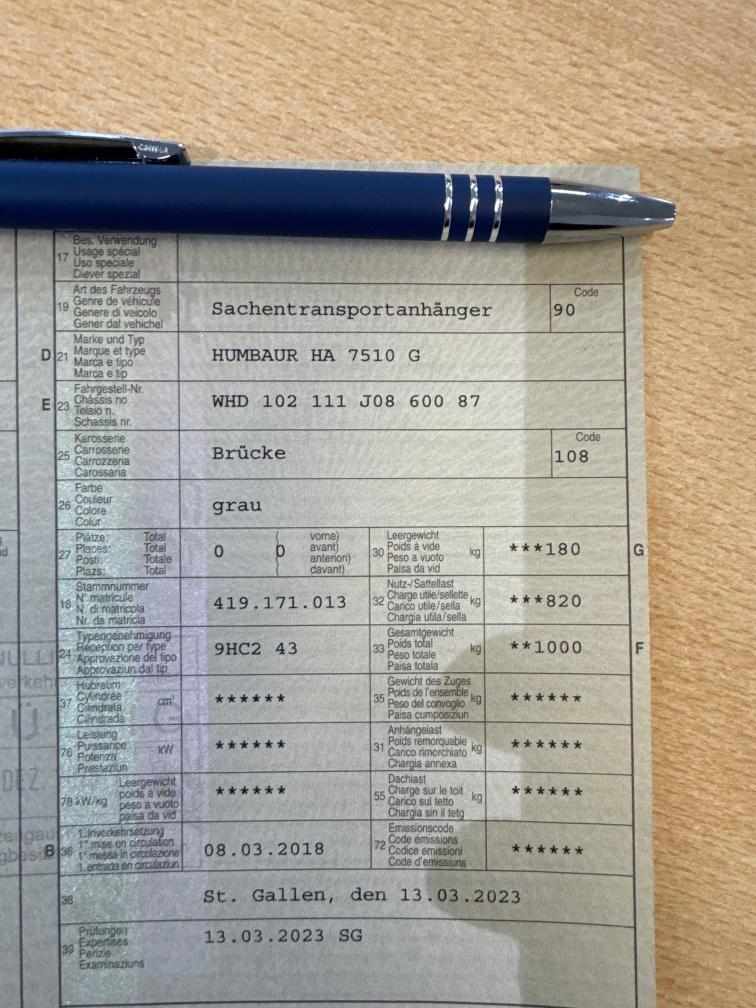 17 Bes. Verwendung
Usage spécial
Uso speciale
Diever spezial
19 Art des Fahrzeugs
Genre de véhicule
Genere di veicolo
Gener dal vehichel
Sachentransportanhänger
Code
90
D 21 Marke und Typ
Marque et type
Marca e tipo
Marca e tip
HUMBAUR HA 7510 G
E 23 Fahrgestell-Nr.
Châssis no
Telaio n.
Schassis nr.
WHD 102 111 J08 600 87
25 Karosserie
Carrosserie
Carrozzeria
Carossaria
Brücke
Code
108
26 Farbe
Couleur
Colore
Colur
grau
27 Plätze: Total
Places: Total
Posti: Totale
Plazs: Total
0 ( 0 vorne)
avant)
anteriori)
davant)
30 Leergewicht
Poids à vide
Peso a vuoto
Paisa da vid
kg
***180
G
18 Stammnummer
N° matricule
N. di matricola
Nr. da matricla
419.171.013
32 Nutz-/Sattellast
Charge utile/sellette
Carico utile/sella
Chargia utila/sella
kg
***820
24 Typengenehmigung
Réception par type
Approvazione del tipo
Approvaziun dal tip
9HC2 43
33 Gesamtgewicht
Poids total
Peso totale
Paisa totala
kg
**1000
F
37 Hubraum
Cylindrée
Cilindrata
Cilindrada
cm³
******
35 Gewicht des Zuges
Poids de l'ensemble
Peso del convoglio
Paisa cumposiziun
kg
******
76 Leistung
Puissance
Potenza
Prestaziun
kW
******
31 Anhängelast
Poids remorquable
Carico rimorchiato
Chargia annexa
kg
******
78 kW/kg Leergewicht
poids à vide
peso a vuoto
paisa da vid
******
55 Dachlast
Charge sur le toit
Carico sul tetto
Chargia sin il tetg
kg
******
B 36 1. Inverkehrsetzung
1re mise en circulation
1a messa in circolazione
1. entrada en circulaziun
08.03.2018
72 Emissionscode
Code émissions
Codice emissioni
Code d'emissiuns
******
38
St. Gallen, den 13.03.2023
39 Prüfungen
Expertises
Perizie
Examinaziuns
13.03.2023 SG